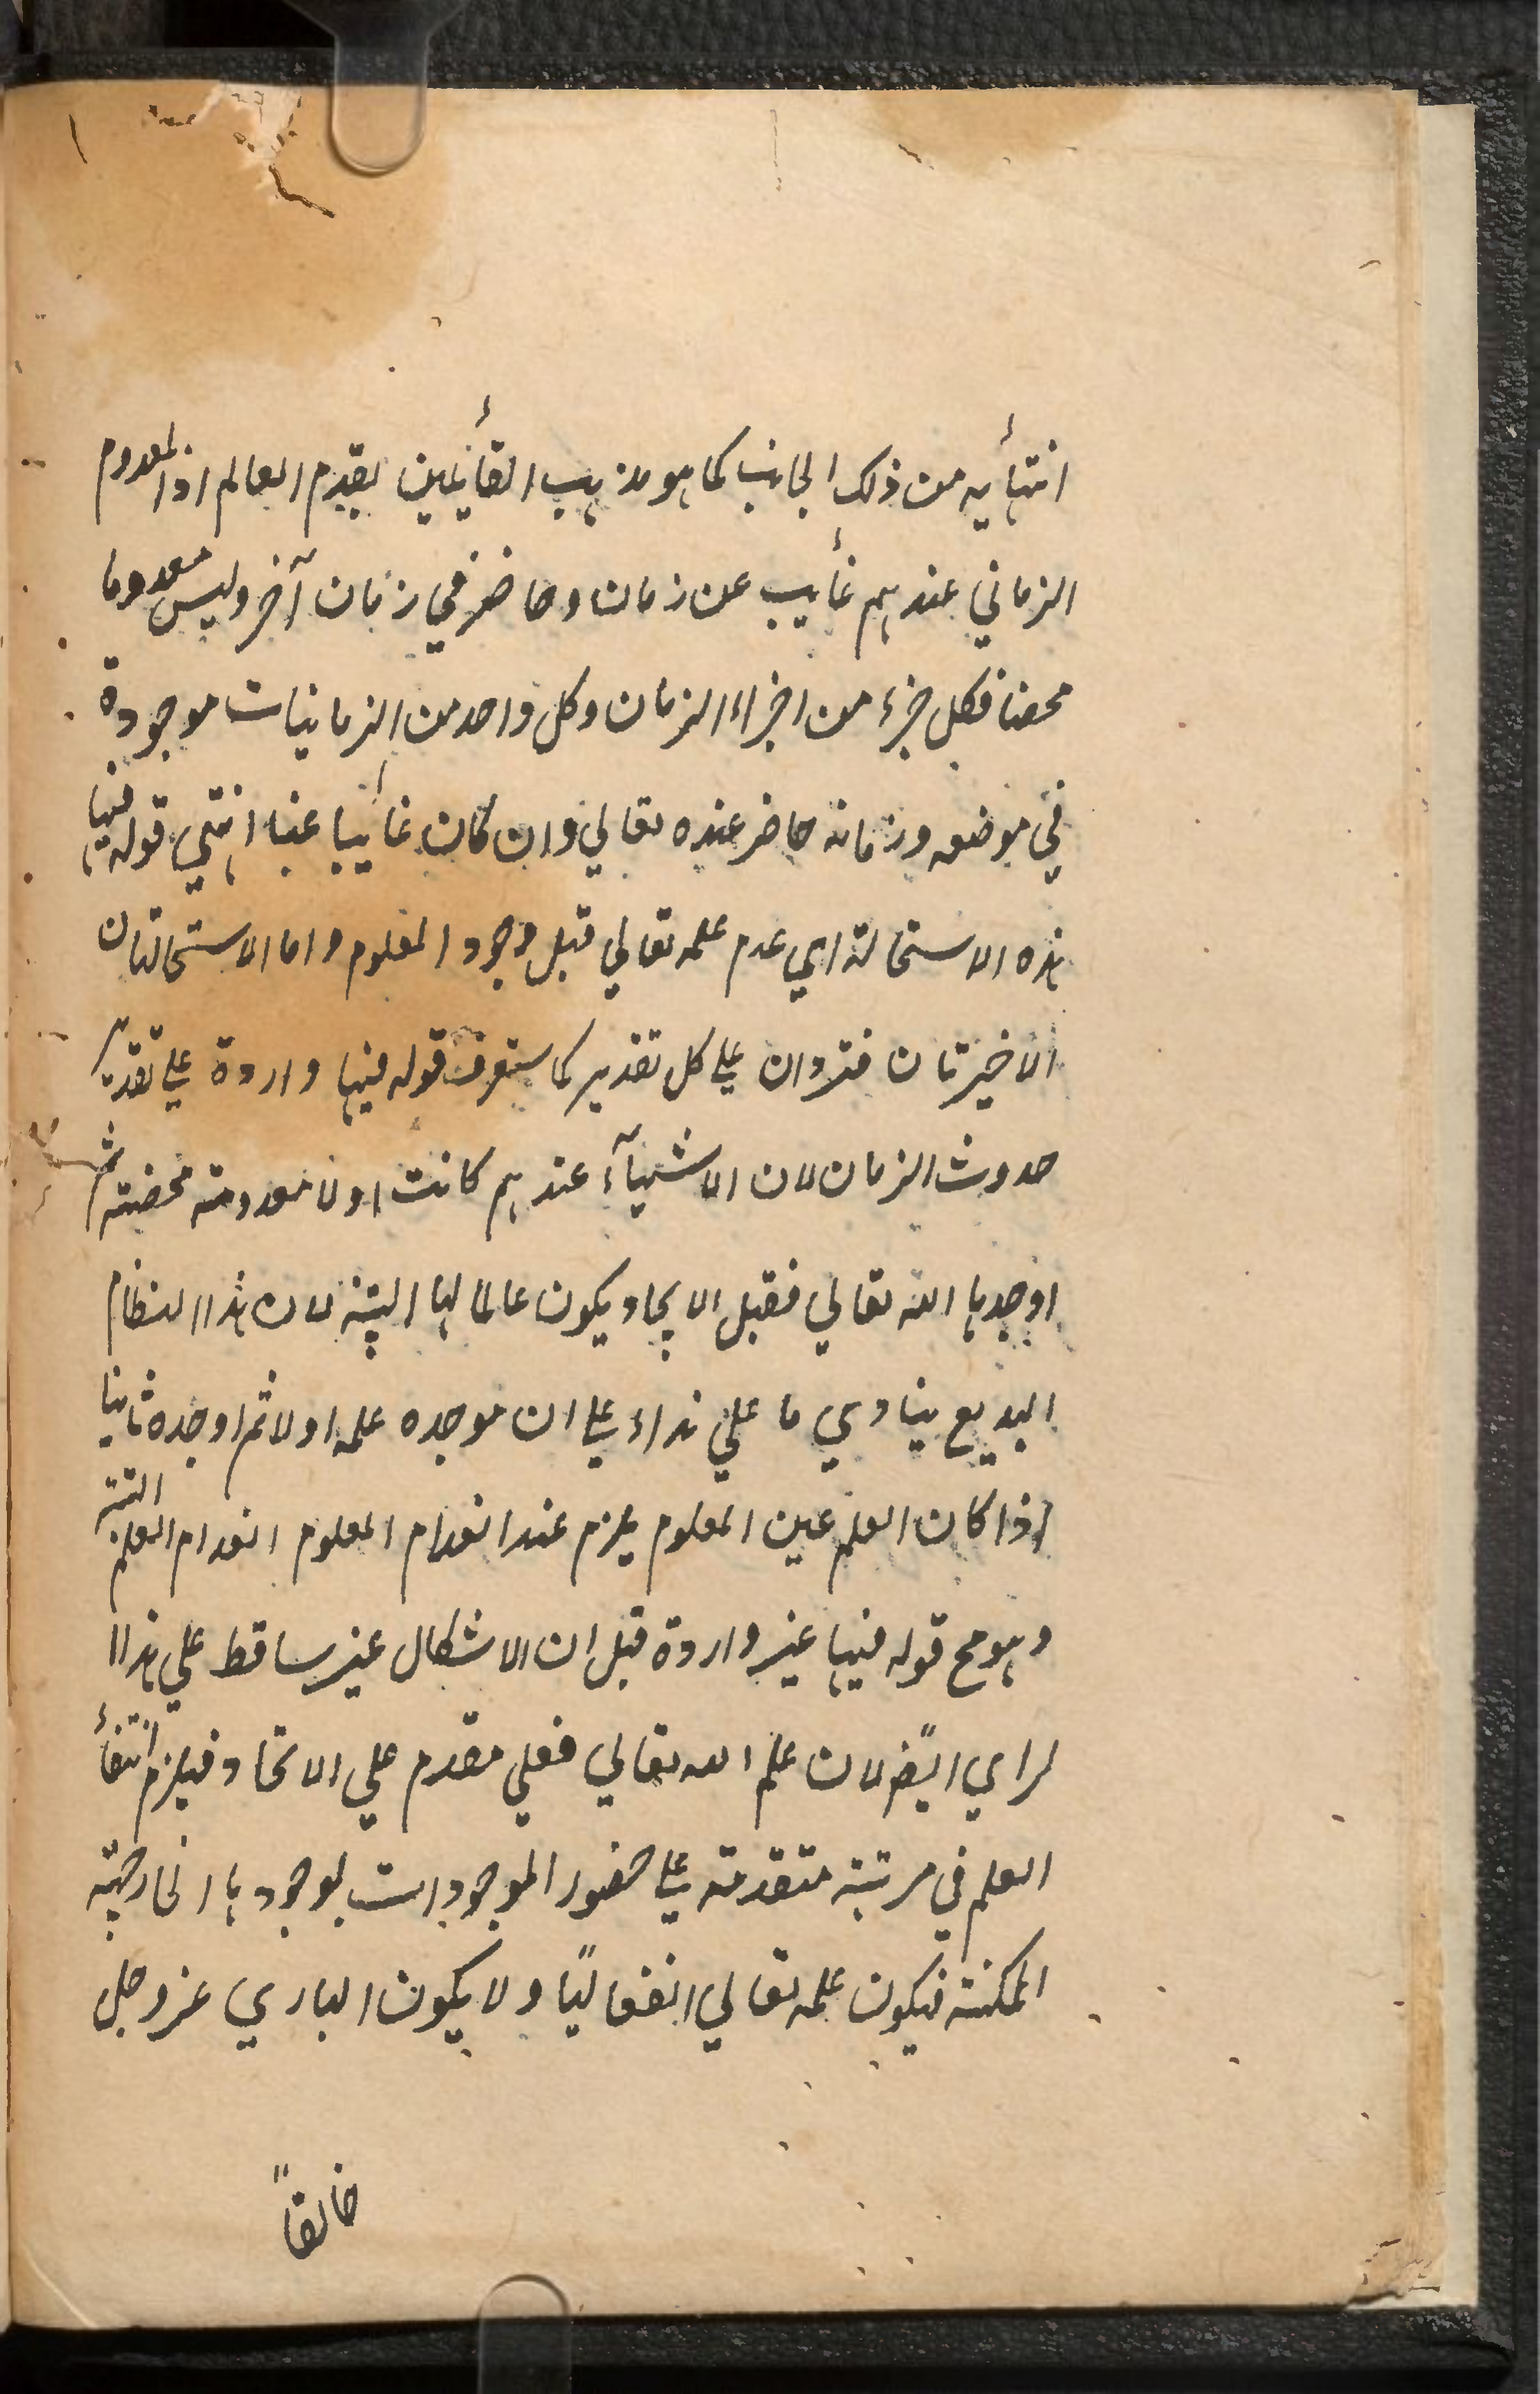 انتهائه من ذلك الجانب كما هو مذهب القائلين بقدم العالم اذ المعدوم
الزماني عندهم غائب عن زمان وحاضر في زمان آخر وليس معدوما
محضا فكل جزء من اجزاء الزمان وكل واحد من الزمانيات موجودة
في موضعه وزمانه حاضر عنده تعالي وان كان غائبا عنا انتهي قوله فيها
هذه الاستحالة اي عدم علمه تعالي قبل وجود المعلوم واما الاستحالتان
الاخيرتان فتردان علي كل تقدير كما ستعرف قوله فيها واردة علي تقدير
حدوث الزمان لان الاشيآء عندهم كانت اولا معدومة محضة ثم
اوجدها الله تعالي فقبل الايجاد يكون عالما لها البتة لان هذا النظام
البديع ينادي ما علي نداء علي ان موجده علمه اولا ثم اوجده ثانيا
اذا كان العلم عين المعلوم يلزم عند انعدام المعلوم انعدام العلم البتة
وهو مح قوله فيها غير واردة قيل ان الاشكال غير ساقط علي هذا ا
لراي ايضً لان علم الله تعالي فعلي مقدم علي الاتحاد فيلزم انتفاء
العلم في مرتبة متقدمة علي حضور الموجودات بوجودها الخارجية
الممكنة فيكون علمه تعالي انفعاليًا ولا يكون الباري عز وجل
خالقاً